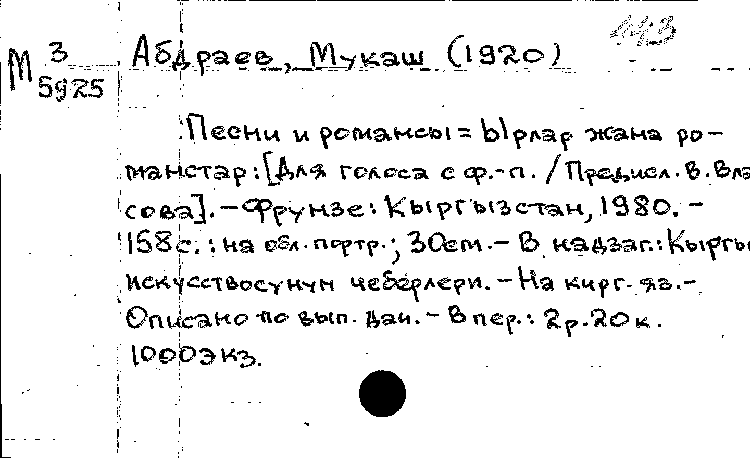 М 3 Абдраев, Мукаш (1920) 443
5925
Песни и романсы = Ырлар жана ро-
манстар: [Для голоса с ф.-п. / Предисл. В. Вла
сова]. – Фрунзе: Кыргызстан, 1980. –
158с.: на обл. портр.; 30см. – В надзаг.: Кыргы
искусствосунун чеберлери. – На кирг. яз. –
Описано по вып. дан. – В пер.: 2р. 20к.
1000экз.